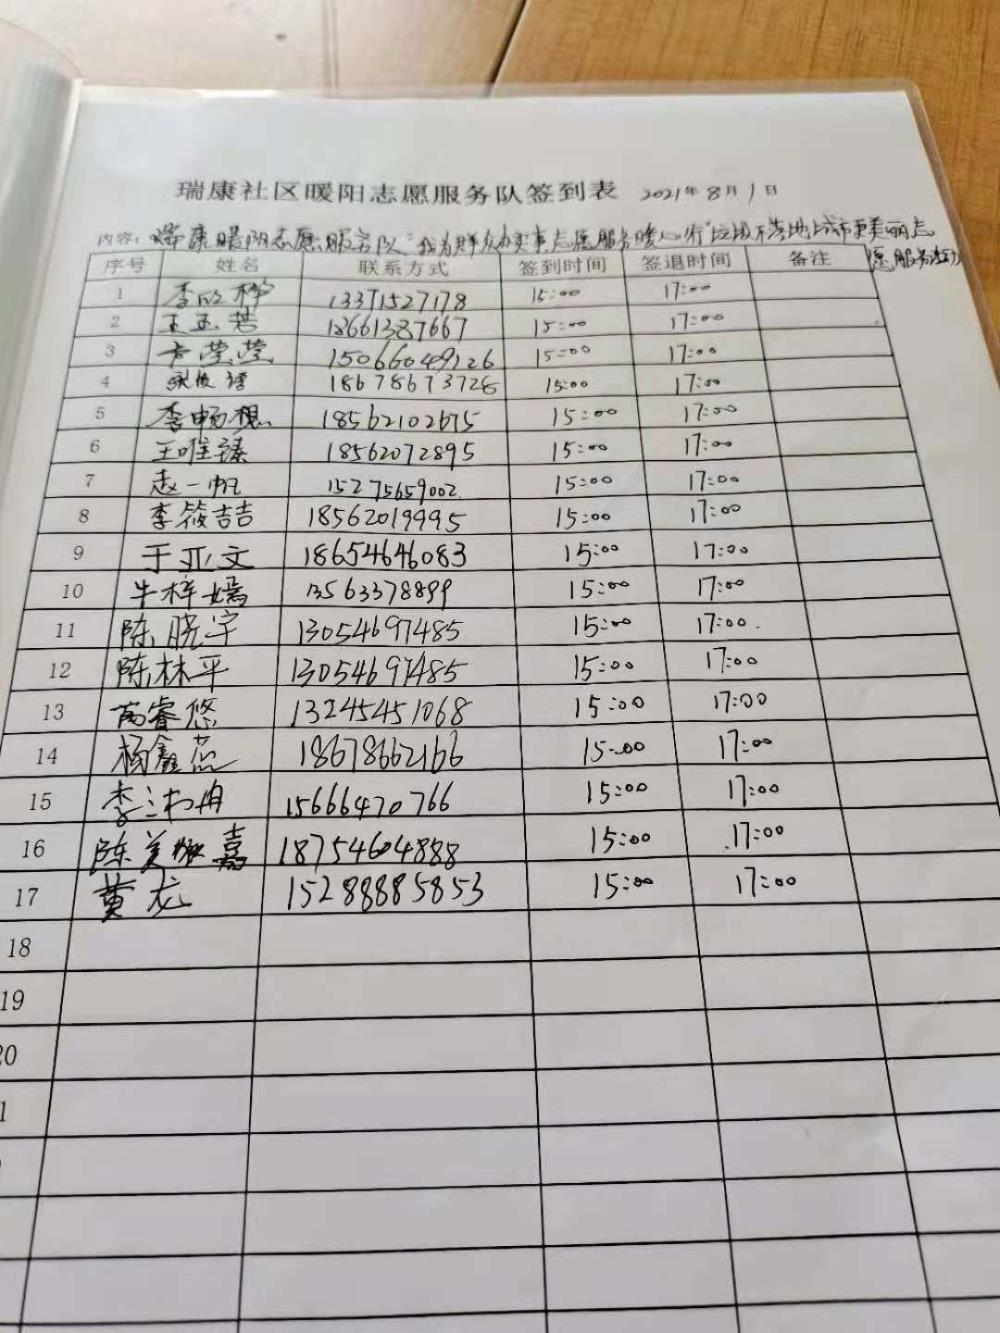 瑞康社区暖阳志愿服务队签到表 2021年8月1日
内容：瑞康暖阳志愿服务队"我为群众办实事志愿服务暖心行"垃圾不落地城市更美丽志
愿服务活动
序号 姓名 联系方式 签到时间 签退时间 备注
1 李欣桦 13371527178 15:00 17:00
2 王玉若 18661387667 15:00 17:00
3 莹莹 15066049126 15:00 17:00
4 18678673728 15:00 17:00
5 李畅想 18562102675 15:00 17:00
6 王唯臻 18562072895 15:00 17:00
7 赵一帆 15275659002 15:00 17:00
8 李筱吉吉 18562019995 15:00 17:00
9 于亚文 18654646083 15:00 17:00
10 牛梓嫣 13563378899 15:00 17:00
11 陈晓宇 13054697485 15:00 17:00
12 陈林平 13054697485 15:00 17:00
13 高睿悠 13245451068 15:00 17:00
14 杨鑫蕊 18678662166 15:00 17:00
15 李 15666470766 15:00 17:00
16 陈美嘉 18754604888 15:00 17:00
17 黄龙 15288885853 15:00 17:00
18
19
20
1